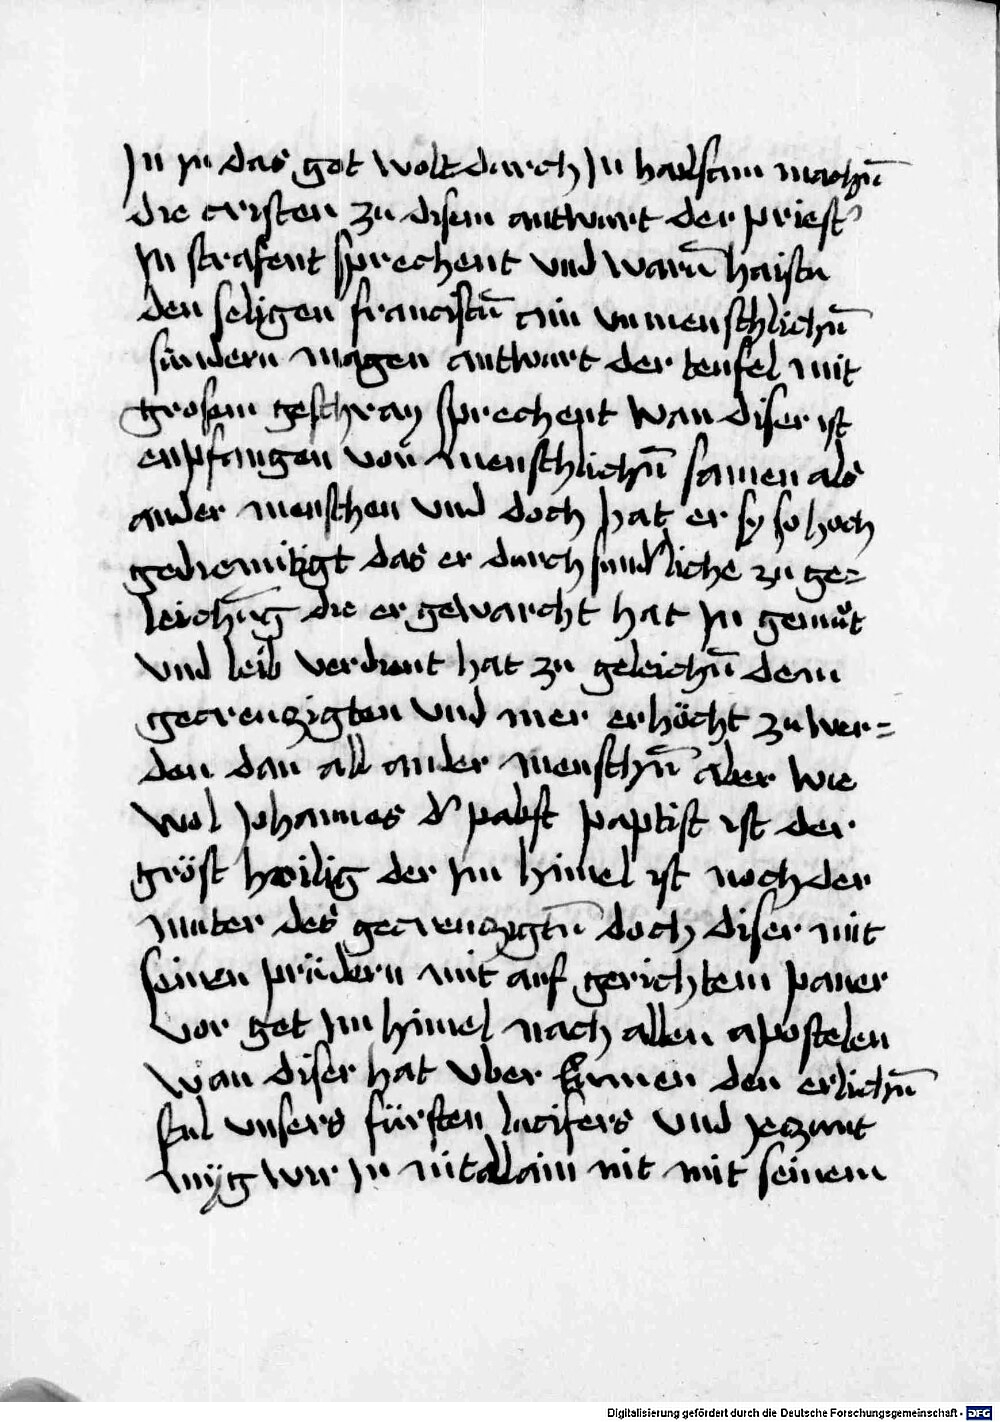 In in das got wolt durch In hailsam machn̄
die cristen zu disem antwurt der priest᾽
In strafent sprechent und warū haistu
den seligen franciscū ain unmenschlichn̄
sundern magen antwurt der teufel mit
grosem geschray sprechent wan diser ist
enpfangen von menschlichn̄ samen als
ander menschen und doch hat er sy so hoch
gediemutigt das er durch sundliche zu ge=
leichūg die er gewarcht hat In gemut
und leib verdient hat zu geleichn̄ dem
gecreuczigten und mer erhöcht zu wer=
den dan all ander menschn̄ aber wie
wol Johannes d᾽ pabst paptist ist der
gröst heilig der Im himel ist noch der
muter des gecreuczigtn̄ doch diser mit
seinen prüdern mit auf gerichtem paner
vor get Im himel nach allen apostelen
wan diser hat uber kumen den erlichn̄
stul unsers fürsten lucifers und yeczunt
mÿg wir In nit allain nit mit seinem
Digitalisierung gefördert durch die Deutsche Forschungsgemeinschaft - DFG